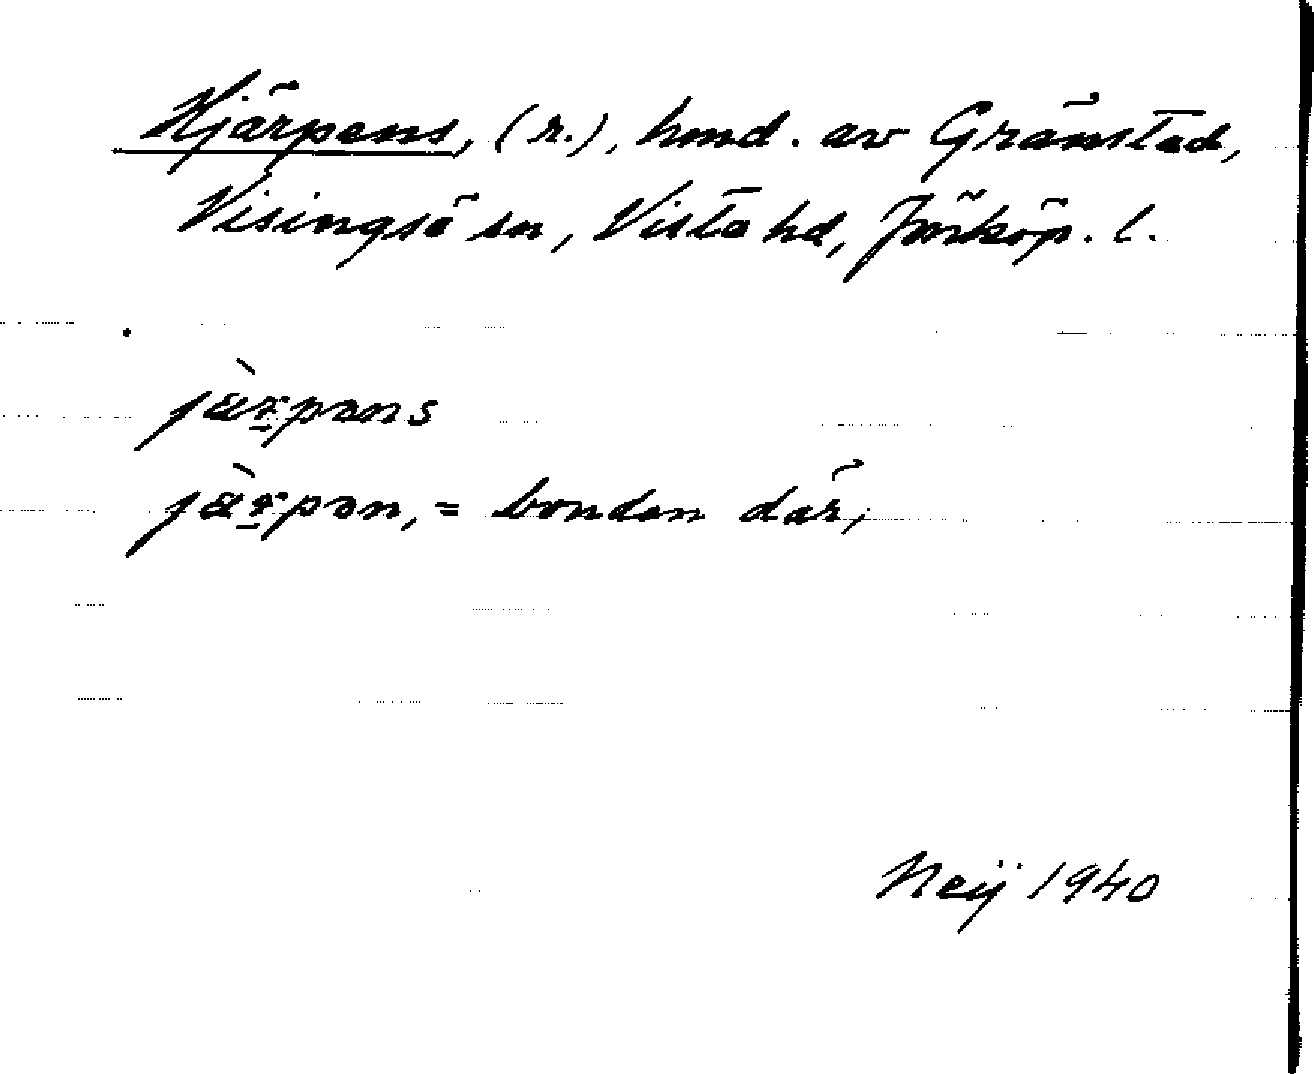 Hjärpens, (r.), hmd. av Gränstad,
Visingsö sn, Vista hd, Jönköp. l.
jä̀rpəns
jä̀rpən, = bonden där,
Neij 1940